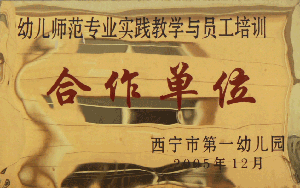 幼儿师范专业实践教学与员工培训
合作单位
西宁市第一幼儿园
2005年12月